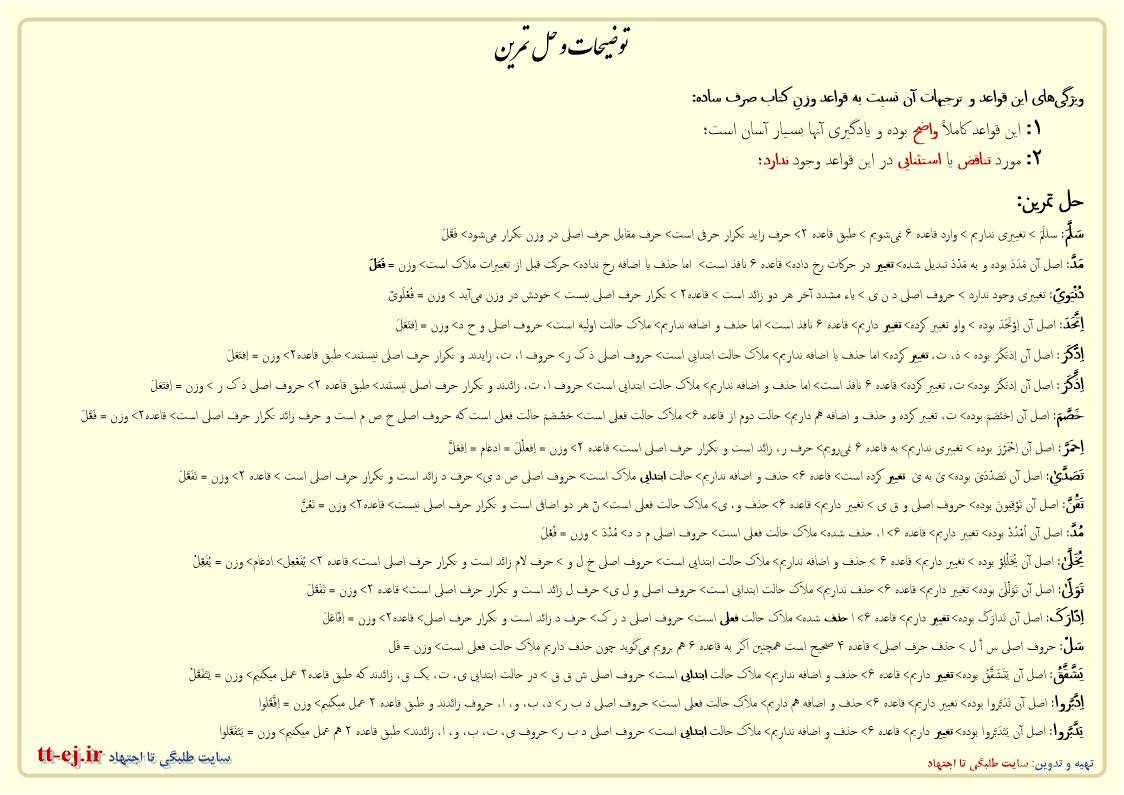 توضیحات و حل تمرین
ویژگی‌های این قواعد و ترجیهات آن نسبت به قواعد وزنِ کتاب صرف ساده:
۱: این قواعد کاملاً واضح بوده و یادگیری آنها بسیار آسان است؛
۲: مورد تناقض یا استثنایی در این قواعد وجود ندارد؛
حل تمرین:
سَلَّمَ: سللَمَ > تغییری نداریم > وارد قاعده ۶ نمی‌شویم > طبق قاعده ۲> حرف زاید تکرار حرفی است> حرف مقابل حرف اصلی در وزن تکرار می‌شود> فَعَّلَ
مَدَّ: اصل آن مَدَدَ بوده و به مَدْدَ تبدیل شده> تغییر در حرکات رخ داده> قاعده ۶ نافذ است> اما حذف یا اضافه رخ نداده> حرکت قبل از تغییرات ملاک است> وزن = فَعَلَ
دُنْیَویّ: تغییری وجود ندارد > حروف اصلی د ن ی > یاء مشدد آخر هر دو زائد است > قاعده۲ > تکرار حرف اصلی نیست > خودش در وزن می‌آید > وزن = فُعْلَویّ
اِتَّحَدَ: اصل آن اِوْتَحَدَ بوده > واو تغییر کرده> تغییر داریم> قاعده ۶ نافذ است> اما حذف و اضافه نداریم> ملاک حالت اولیه است> حروف اصلی و ح د> وزن = اِفتَعَلَ
اِذَّکَرَ: اصل آن اِذتَکَرَ بوده > ذ، ت، تغییر کرده> اما حذف یا اضافه نداریم> ملاک حالت ابتدایی است> حروف اصلی ذ ک ر> حروف ا، ت، زایدند و تکرار حرف اصلی نیستند> طبق قاعده۲> وزن = اِفتَعَلَ
اِدَّکَرَ: اصل آن اِذتَکَرَ بوده> ت، تغییر کرده> قاعده ۶ نافذ است> اما حذف و اضافه نداریم> ملاک حالت ابتدایی است> حروف ا، ت، زائدند و تکرار حرف اصلی نیستند> طبق قاعده ۲> حروف اصلی ذ ک ر > وزن = اِفتَعَلَ
خَصَّمَ: اصل آن اِختَصَمَ بوده> ت، تغییر کرده و حذف و اضافه هم داریم> حالت دوم از قاعده ۶> ملاک حالت فعلی است> خصْصَمَ حالت فعلی است که حروف اصلی خ ص م است و حرف زائد تکرار حرف اصلی است> قاعده۲> وزن = فَعَّلَ
اِحمَرَّ: اصل آن اِحْمَرَرَ بوده > تغییری نداریم> به قاعده ۶ نمی‌رویم> حرف ر، زائد است و تکرار حرف اصلی است> قاعده ۲> وزن = اِفعلْلَ = ادغام = اِفعَلَّ
تَصَدَّیٰ: اصل آن تَصَدْدَیَ بوده> یَ به یٰ تغییر کرده است> قاعده ۶> حذف و اضافه نداریم> حالت ابتدایی ملاک است> حروف اصلی ص د ی> حرف د زائد است و تکرار حرف اصلی است > قاعده ۲> وزن = تَفَعَّلَ
تَقُنَّ: اصل آن تَوْقِیونَ بوده> حروف اصلی و ق ی > تغییر داریم> قاعده ۶> حذف و، ی> ملاک حالت فعلی است> نّ هر دو اضافی است و تکرار حرف اصلی نیست> قاعده۲> وزن = تَعُنَّ
مُدَّ: اصل آن اُمْدُدْ بوده> تغییر داریم> قاعده ۶> ا، حذف شده> ملاک حالت فعلی است> حروف اصلی م د د> مُدْدَ > وزن = فُعْلَ
یُخَلَّیٰ: اصل آن یُخَلْلِوُ بوده > تغییر داریم> قاعده ۶ > حذف و اضافه نداریم> ملاک حالت ابتدایی است> حروف اصلی خ ل و > حرف لام زائد است و تکرار حرف اصلی است> قاعده ۲> یُفَعْعِلُ> ادغام> وزن = یُفَعِّلُ
تَوَلّیٰ: اصل آن تَوَلْلَیَ بوده> تغییر داریم> قاعده ۶> حذف نداریم> ملاک حالت ابتدایی است> حروف اصلی و ل ی> حرف ل زائد است و تکرار حرف اصلی است> قاعده ۲> وزن = تَفَعَّلَ
اِدّارَکَ: اصل آن تَدارَکَ بوده> تغییر داریم> قاعده ۶> ا حذف شده> ملاک حالت فعلی است> حروف اصلی د ر ک> حرف د زائد است و تکرار حرف اصلی> قاعده۲> وزن = اِفّاعَلَ
سَلْ: حروف اصلی س أ ل > حذف حرف اصلی> قاعده ۴ صحیح است همچنین اگر به قاعده ۶ هم برویم می‌گوید چون حذف داریم ملاک حالت فعلی است> وزن = فَل
یَشَّقَّقُ: اصل آن یَتَشَقَّقُ بوده> تغییر داریم> قاعده ۶> حذف و اضافه نداریم> ملاک حالت ابتدایی است> حروف اصلی ش ق ق > در حالت ابتدایی ی، ت، یک ق، زائدند که طبق قاعده۲ عمل میکنیم> وزن = یَتَفَعَّلُ
اِدَّبَّروا: اصل آن تَدَبَّروا بوده> تغییر داریم> قاعده ۶> حذف و اضافه هم داریم> ملاک حالت فعلی است> حروف اصلی د ب ر> د، ب، و، ا، حروف زائدند و طبق قاعده ۲ عمل میکنیم> وزن = اِفَّعَّلوا
یَدَّبَّروا: اصل آن یَتَدَبَّروا بوده> تغییر داریم> قاعده ۶> حذف و اضافه نداریم> ملاک حالت ابتدایی است> حروف اصلی د ب ر> حروف ی، ت، ب، و، ا، زائدند> طبق قاعده ۲ هم عمل میکنیم> وزن = یَتَفَعَّلوا
تهیه و تدوین: سایت طلبگی تا اجتهاد
سایت طلبگی تا اجتهاد tt-ej.ir